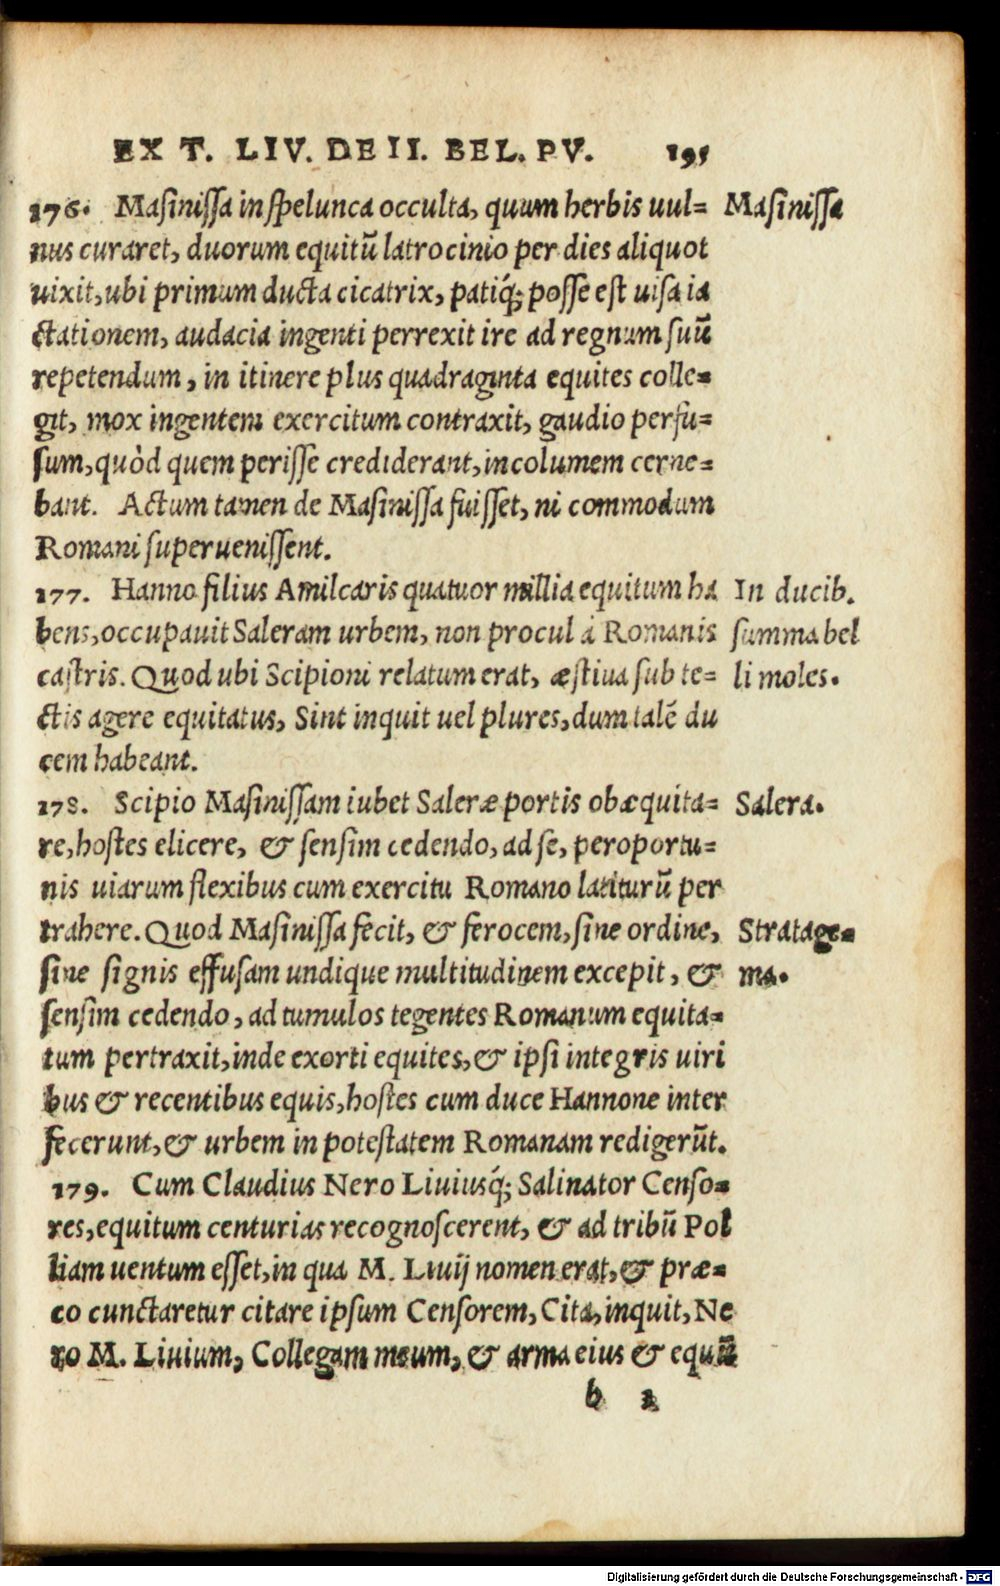 EX T. LIV. DE II. BEL. PV. 195
176. Masinissa in spelunca occulta, quum herbis uul= Masinissa
nus curaret, duorum equitũ latrocinio per dies aliquot
uixit, ubi primum ducta cicatrix, patiq́; posse est uisa ia
ctationem, audacia ingenti perrexit ire ad regnum suũ
repetendum, in itinere plus quadraginta equites colle=
git, mox ingentem exercitum contraxit, gaudio perfu=
sum, quòd quem perisse crediderant, incolumem cerne=
bant. Actum tamen de Masinissa fuisset, ni commodum
Romani superuenissent.
177. Hanno filius Amilcaris quatuor millia equitum ha In ducib.
bens, occupauit Saleram urbem, non procul à Romanis summa bel
castris. Quod ubi Scipioni relatum erat, æstiua sub te= li moles.
ctis agere equitatus, Sint inquit uel plures, dum talẽ du
cem habeant.
178. Scipio Masinissam iubet Saleræ portis obæquita= Salera.
re, hostes elicere, & sensim cedendo, ad se, peroportu=
nis uiarum flexibus cum exercitu Romano latiturũ per
trahere. Quod Masinissa fecit, & ferocem, sine ordine, Stratage=
sine signis effusam undique multitudinem excepit, & ma.
sensim cedendo, ad tumulos tegentes Romanum equita=
tum pertraxit, inde exorti equites, & ipsi integris uiri
bus & recentibus equis, hostes cum duce Hannone inter
fecerunt, & urbem in potestatem Romanam redigerũt.
179. Cum Claudius Nero Liuiusq́; Salinator Censo=
res, equitum centurias recognoscerent, & ad tribũ Pol
liam uentum esset, in qua M. Liuij nomen erat, & præ=
co cunctaretur citare ipsum Censorem, Cita, inquit, Ne
ro M. Liuium, Collegam meum, & arma eius & equũ
b 2
Digitalisierung gefördert durch die Deutsche Forschungsgemeinschaft - DFG